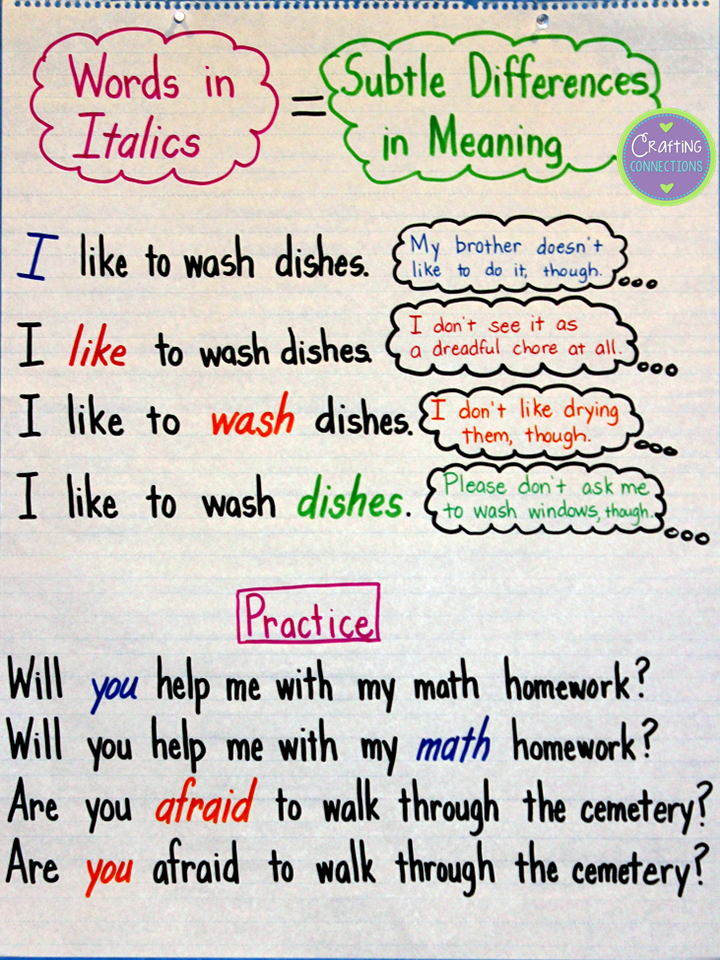 Words in
Italics
=
Subtle Differences
in Meaning
CRAFTING
CONNECTIONS
I like to wash dishes.
My brother doesn't
like to do it, though.
I like to wash dishes.
I don't see it as
a dreadful chore at all.
I like to wash dishes.
I don't like drying
them, though.
I like to wash dishes.
Please don't ask me
to wash windows, though.
Practice
Will you help me with my math homework?
Will you help me with my math homework?
Are you afraid to walk through the cemetery?
Are you afraid to walk through the cemetery?